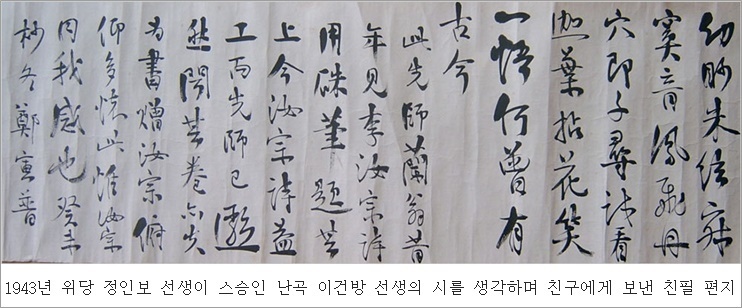 幼眇朱絃寂
寞音鳳飛丹
穴即子尋試看
迦葉拈花笑
一悟何曾有
古今
此先師蘭翁昔
年見李汝宗詩
用硃筆題其
上今汝宗詩益
工而先師已
然閱其卷亦失
為書贈汝宗俯
仰多懷此惟汝宗
同我感也癸未
杪冬鄭寅普
1943년 위당 정인보 선생이 스승인 난곡 이건방 선생의 시를 생각하며 친구에게 보낸 친필 편지